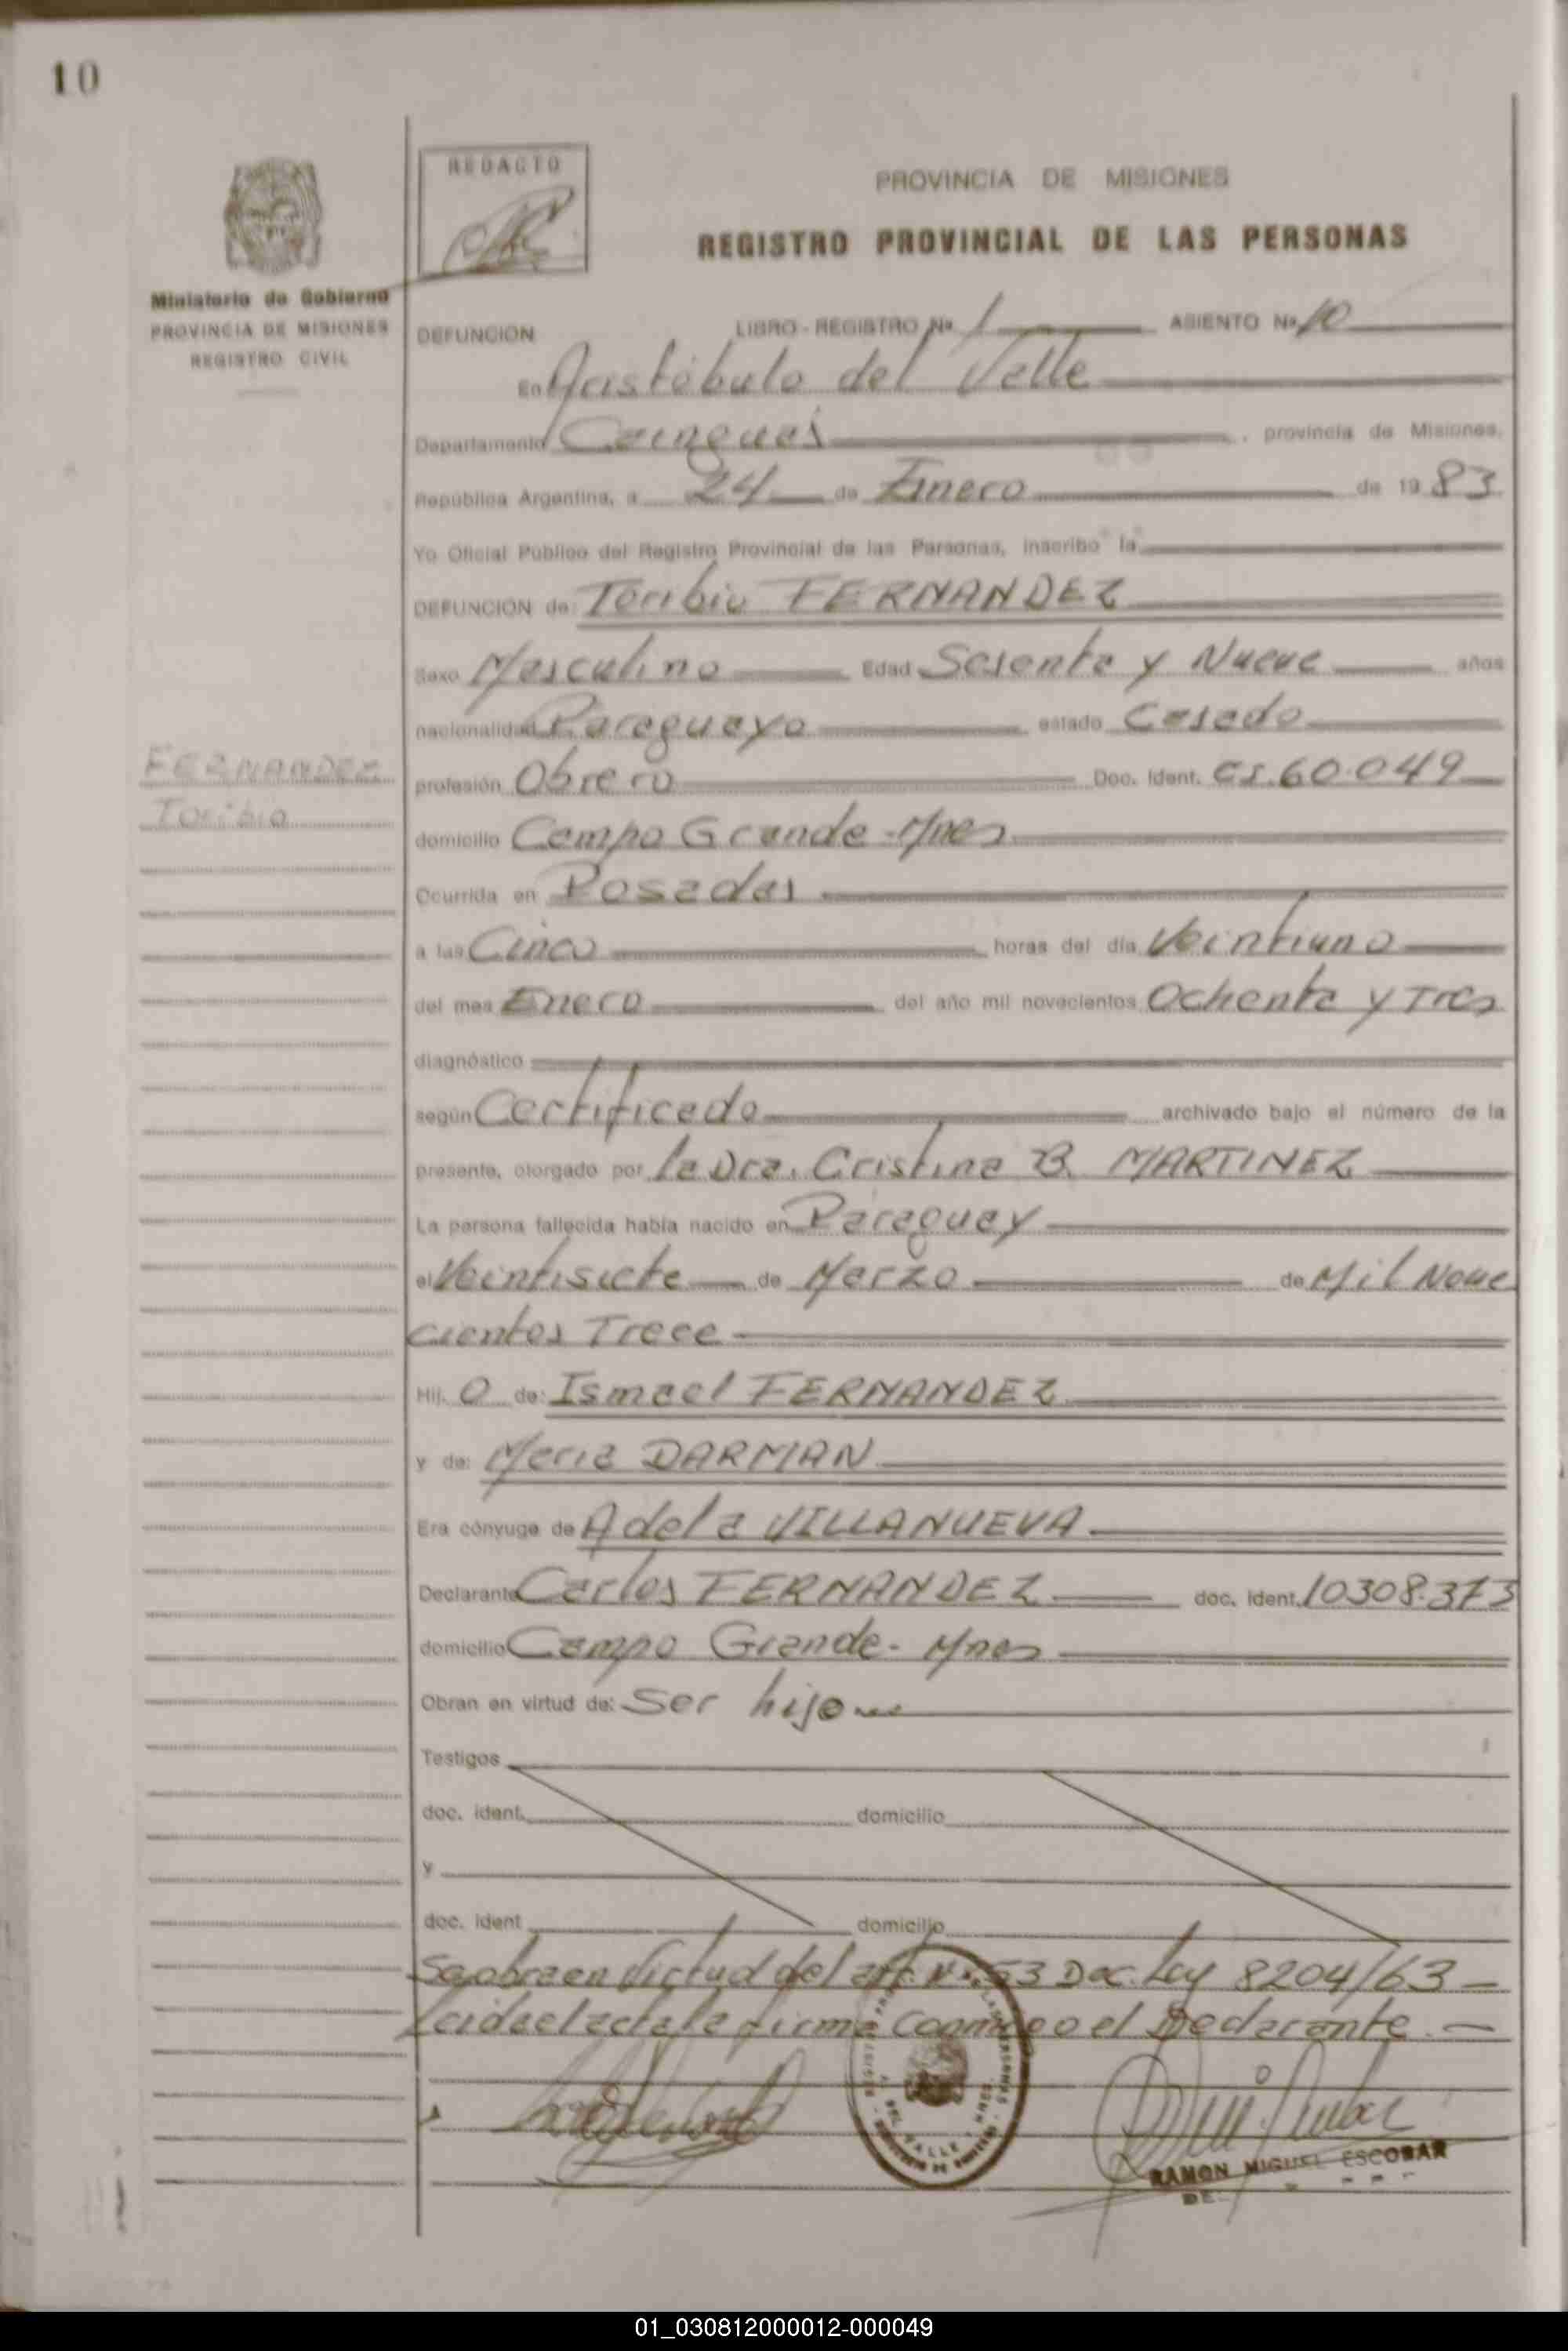 10
REDACTO
PROVINCIA DE MISIONES
REGISTRO PROVINCIAL DE LAS PERSONAS
Ministerio de Gobierno
PROVINCIA DE MISIONES
REGISTRO CIVIL
DEFUNCION LIBRO - REGISTRO Nº 1 ASIENTO Nº 10
En Aristóbulo del Valle
Departamento Cainguás, provincia de Misiones,
República Argentina, a 24 de Enero de 1983
Yo Oficial Público del Registro Provincial de las Personas, inscribo la
DEFUNCION de: Toribio FERNANDEZ
Sexo Masculino Edad Sesenta y Nueve años
nacionalidad Paraguaya estado Casado
FERNANDEZ
Toribio
profesión Obrero Doc. Ident. CI.60.049
domicilio Campo Grande - Mnes
Ocurrida en Posadas
a las Cinco horas del día Veintiuno
del mes Enero del año mil novecientos Ochenta y Tres
diagnóstico
según Certificado archivado bajo el número de la
presente, otorgado por la Dra. Cristina B. MARTINEZ
La persona fallecida había nacido en Paraguay
el Veintisiete de Marzo de Mil Nove
cientos Trece
Hij o de: Ismael FERNANDEZ
y de: Maria DARMAN
Era cónyuge de Adela VILLANUEVA
Declarante Carlos FERNANDEZ doc. ident. 10308.373
domicilio Campo Grande - Mnes
Obran en virtud de: Ser hijo
Testigos
doc. ident. domicilio
y
doc. ident domicilio
Se obra en virtud del art. Nº 53 Dec. Ley 8204/63 -
Leida el acta la firma conmigo el Declarante. -
RAMON MIGUEL ESCOBAR
01_030812000012-000049